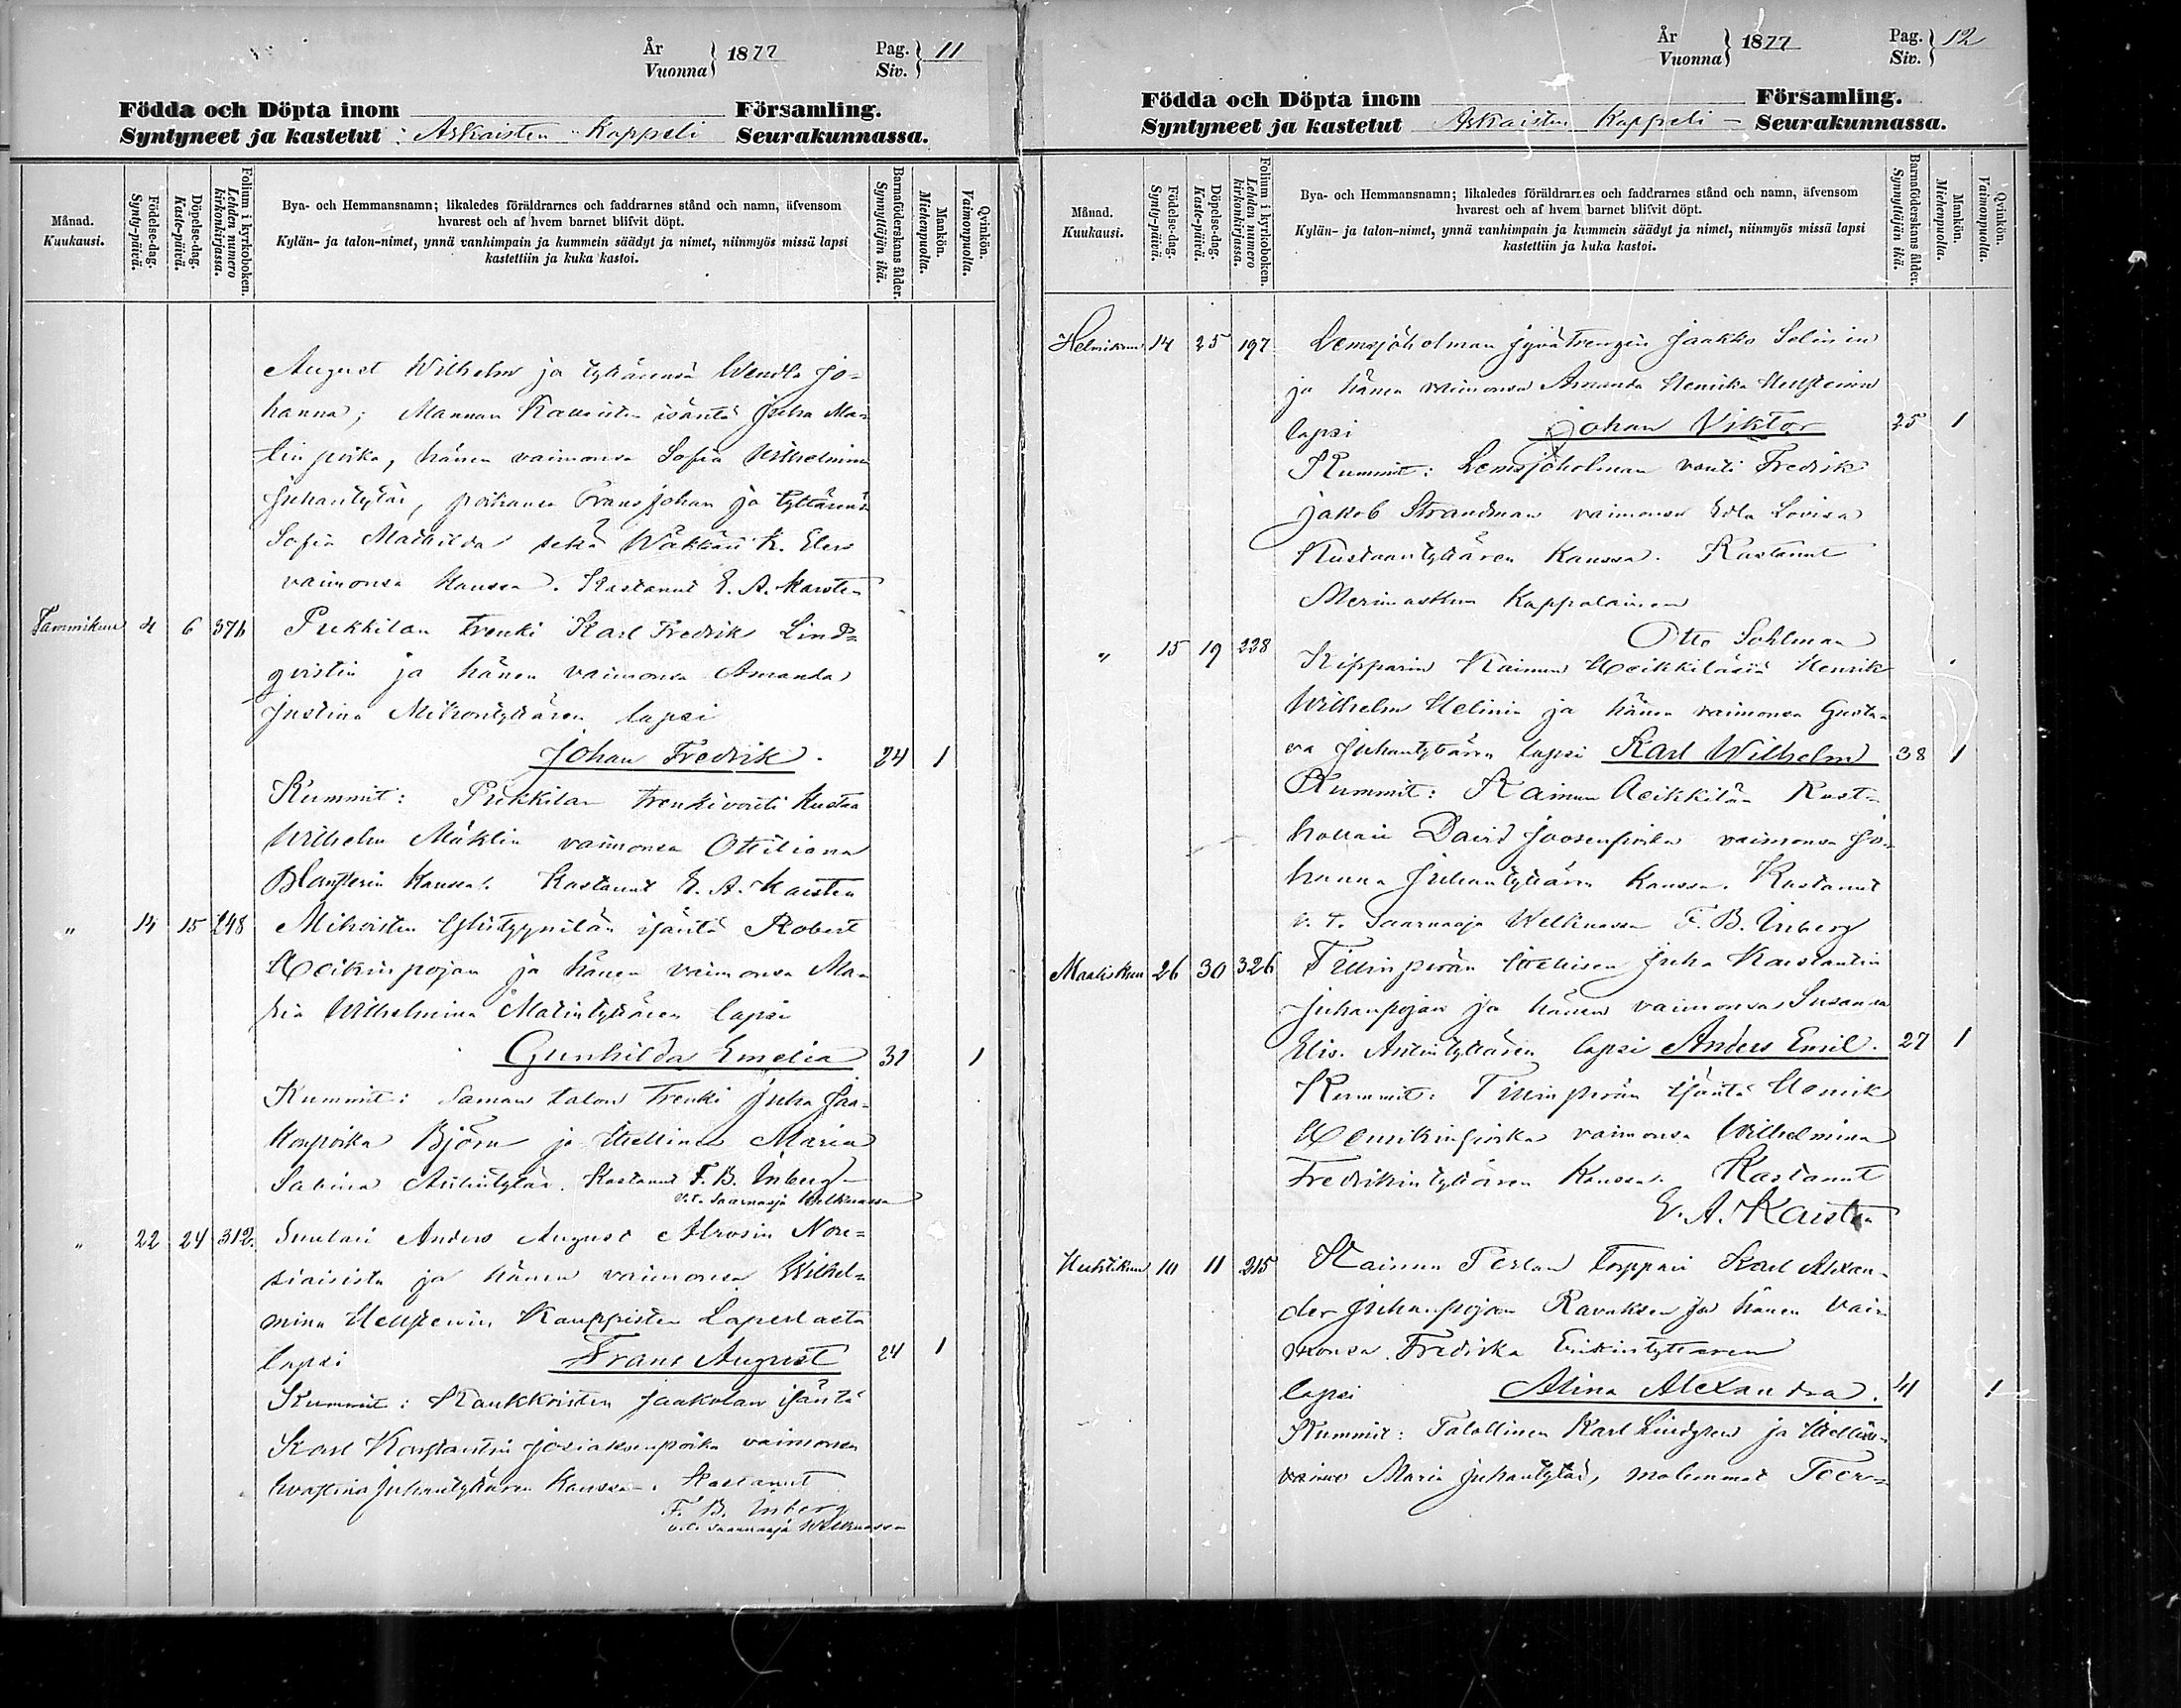 År
Vuonna } 1877 Pag.
Siv. } 11
Födda och Döpta inom Församling.
Syntyneet ja kastetut Askaisten Kappeli Seurakunnassa.
Månad.
Kuukausi.
Födelse-dag.
Synty-päivä.
Döpelse-dag.
Kaste-päivä.
Folium i kyrkoboken.
Lehden numero kirkonkirjassa.
Bya- och Hemmansnamn; likaledes föräldrarnes och faddrarnes stånd och namn, äfvensom
hvarest och af hvem barnet blifvit döpt.
Kylän- ja talon-nimet, ynnä vanhimpain ja kummein säädyt ja nimet, niinmyös missä lapsi
kastettiin ja kuka kastoi.
Barnaföderskans ålder.
Synnyttäjän ikä.
Mankön.
Miehenpuolta.
Qvinkön.
Vaimonpuolta.
August Wilhelm ja tyttärensä Wendla Jo-
hanna; Mannan isäntä Juha Ma-
tinpoika, hänen vaimonsa Sofia Wilhelmina
Juhantytär, poikansa Frans Johan ja tyttärensä
Sofia Mathilda sekä K. Elers
vaimonsa kanssa. Kastanut E. A. Karsten
Tammikuu 4 6 376 Pukkilan trenki Karl Fredrik Lind-
qvistin ja hänen vaimonsa Amanda
Justina Mikontyttären lapsi
Johan Fredrik. 24 1
Kummit: Pukkilan trenkivouti Kustaa
Wilhelm Mäklin vaimonsa Ottiliana
kanssa. Kastanut E. A. Karsten
" 14 15 248 isäntä Robert
Heikinpojan ja hänen vaimonsa Ma-
ria Wilhelmina Matintyttären lapsi
Gunhilda Emelia 31 1
Kummit: Saman talon trenki Juha Jaa-
konpoika Björn ja itsellinen Maria
Sabina Antintytär. Kastanut F. B. Inberg
v.t. Saarnaaja Welkuassa
" 22 24 312. Anders August Nou-
siaisista ja hänen vaimonsa Wilhel-
mina
lapsi Frans August 24 1
Kummit: Jaakolan isäntä
Karl Konstantin Josiaksenpoika vaimonsa
Juhantyttären kanssa. Kastanut
F. B. Inberg
v.t. Saarnaaja Welkuassa
År
Vuonna } 1877 Pag.
Siv. } 12
Födda och Döpta inom Församling.
Syntyneet ja kastetut Askaisten Kappeli – Seurakunnassa.
Månad.
Kuukausi.
Födelse-dag.
Synty-päivä.
Döpelse-dag.
Kaste-päivä.
Folium i kyrkoboken.
Lehden numero kirkonkirjassa.
Bya- och Hemmansnamn; likaledes föräldrarnes och faddrarnes stånd och namn, äfvensom
hvarest och af hvem barnet blifvit döpt.
Kylän- ja talon-nimet, ynnä vanhimpain ja kummein säädyt ja nimet, niinmyös missä lapsi
kastettiin ja kuka kastoi.
Barnaföderskans ålder.
Synnyttäjän ikä.
Mankön.
Miehenpuolta.
Qvinkön.
Vaimonpuolta.
Helmikuu 14 25 197 Lemsjöholman jyvätrengin Jaakko Selinin
ja hänen vaimonsa Amanda
lapsi Johan Viktor 25 1
Kummit: Lemsjöholman vouti Fredrik
Jakob Strandman vaimonsa Edla Lovisa
Kustaantyttären kanssa. Kastanut
Merimaskun kappalainen
Otto Sohlman
" 15 19 228 Kipparin Kaimun Heikkilästä Henrik
Wilhelm Helinin ja hänen vaimonsa Gusta-
va Juhantyttären lapsi Karl Wilhelm 38 1
Kummit: Kaimun Heikkilän Rust-
hollari David Joosenpoika vaimonsa Jo-
hanna Juhantyttären kanssa. Kastanut
v. t. Saarnaaja Welkuassa F. B. Inberg
Maaliskuu 26 30 326 itsellisen Juha Konstantin
Juhanpojan ja hänen vaimonsa Susanna
Elis. Antintyttären lapsi Anders Emil. 27 1
Kummit: isäntä Henrik
Henrikinpoika vaimonsa Wilhelmina
Fredrikintyttären kanssa. Kastanut
E. A. Karsten
Huhtikuu 10 11 215 Kaimun torppari Karl Alexan-
der Juhanpojan ja hänen vai-
monsa Fredrika Erikintyttären
lapsi Alina Alexandra. 41 1
Kummit: Talollinen Karl Lindgren ja itsellis-
vaimo Maria Juhantytär, molemmat